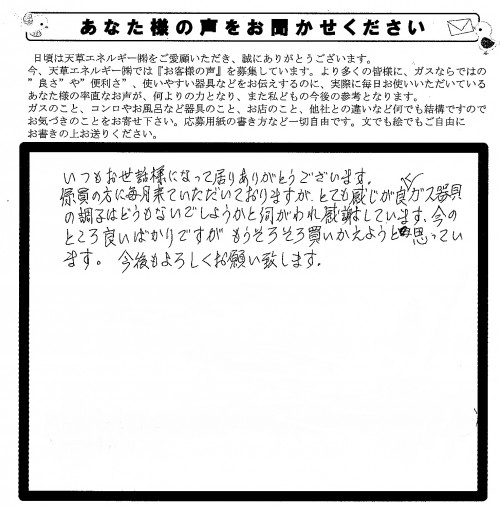 あなた様の声をお聞かせください
日頃は天草エネルギー㈱をご愛顧いただき、誠にありがとうございます。
今、天草エネルギー㈱では『お客様の声』を募集しています。より多くの皆様に、ガスならではの
”良さ”や”便利さ”、使いやすい器具などをお伝えするのに、実際に毎日お使いいただいている
あなた様の率直なお声が、何よりの力となり、また私どもの今後の参考となります。
ガスのこと、コンロやお風呂など器具のこと、お店のこと、他社との違いなど何でも結構ですので
お気づきのことをお寄せ下さい。応募用紙の書き方など一切自由です。文でも絵でもご自由に
お書きの上お送りください。
いつもお世話様になって居りありがとうございます。
係員の方に毎月来ていただいておりますが、とても感じが良くガス器具
の調子はどうもないでしょうかと伺がわれ感謝しています、今の
ところ良いばかりですが もうそろそろ買いかえようと思ってい
ます。 今後もよろしくお願い致します.